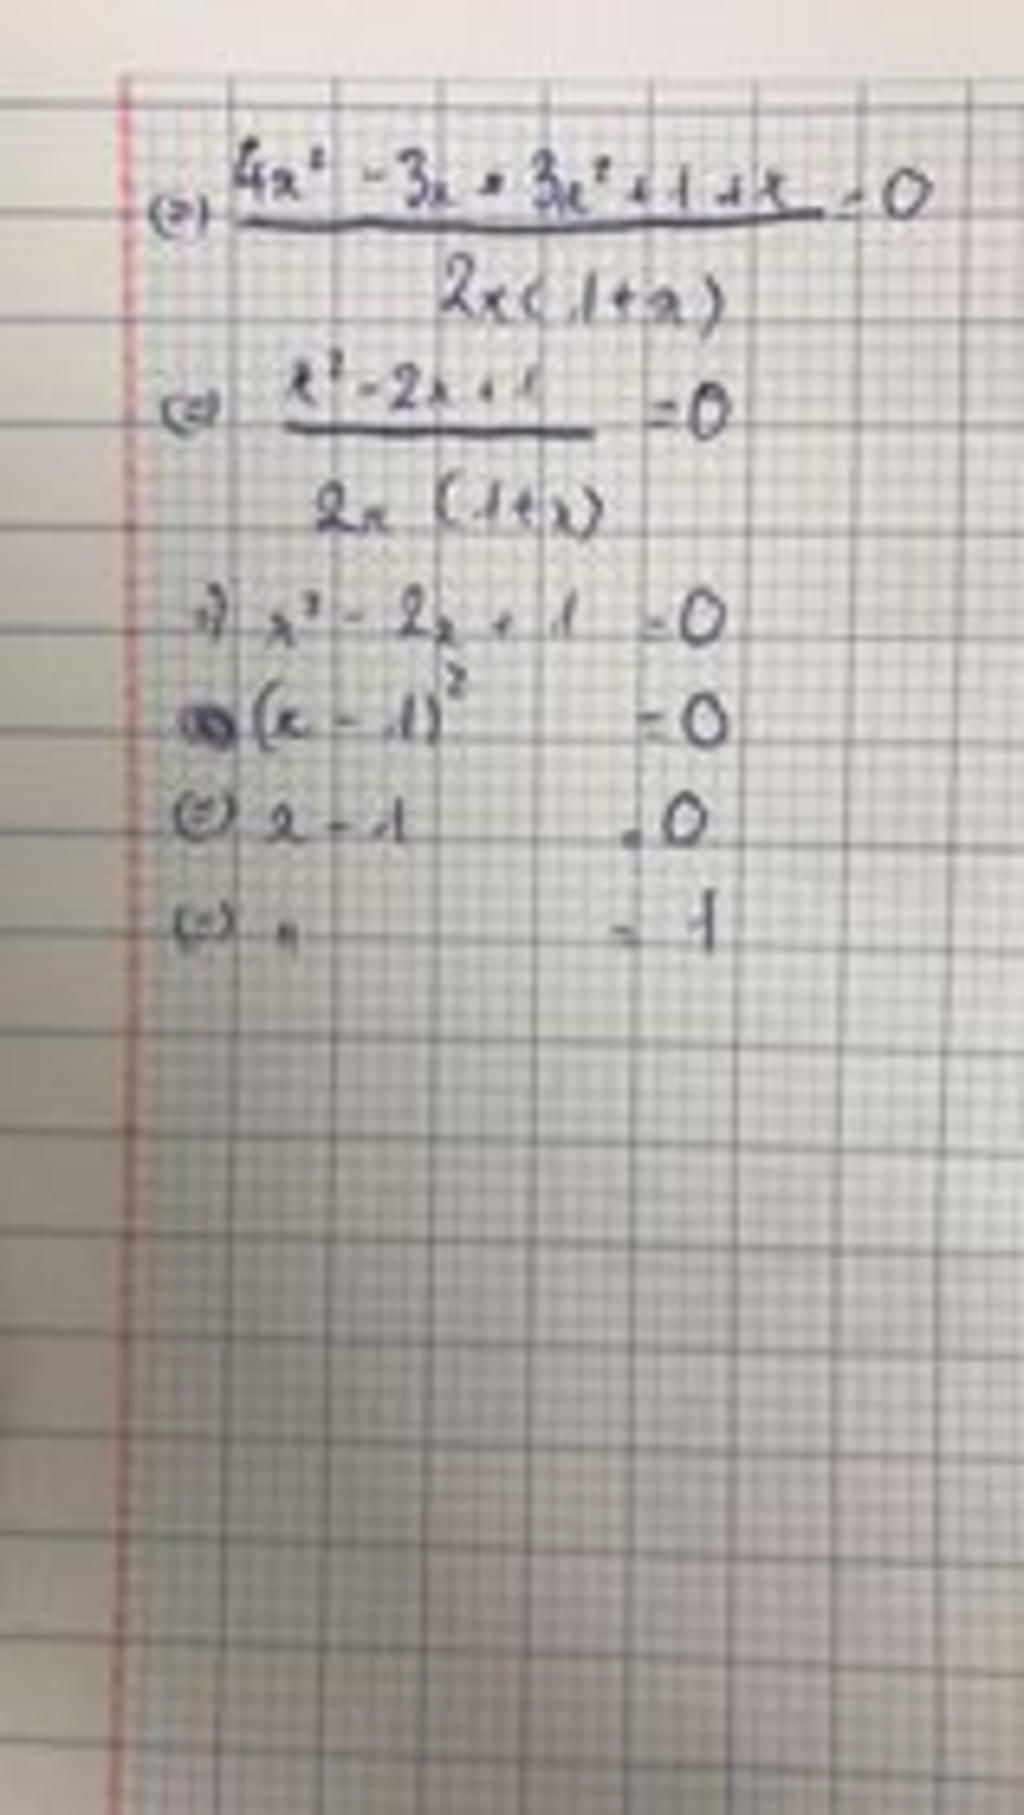 (=) (4x² - 3x - 3x² + 1 + x) / (2x(1+x)) = 0
(=) (x² - 2x + 1) / (2x (1+x)) = 0
=) x² - 2x + 1 = 0
(x - 1)² = 0
(=) x - 1 = 0
(=) x = 1